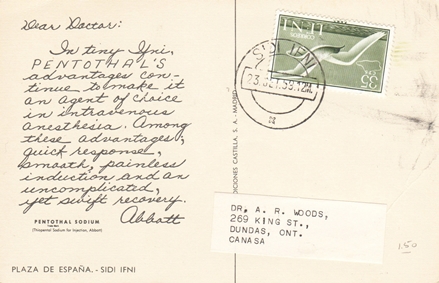 Dear Doctor:
In tiny Ifni,
PENTOTHAL'S
advantages con-
tinue to make it
an agent of choice
in intravenous
anesthesia. Among
these advantages,
quick response,
smooth, painless
induction and an
uncomplicated,
yet swift recovery.
Abbott
PENTOTHAL SODIUM
(Thiopental Sodium for Injection, Abbott)
PLAZA DE ESPAÑA. - SIDI IFNI
DICIONES CASTILLA, S. A., MADRID
IFNI
CORREOS
35
SIDI IFNI
DR, A. R. WOODS,
269 KING ST.,
DUNDAS, ONT.
CANADA
1.50